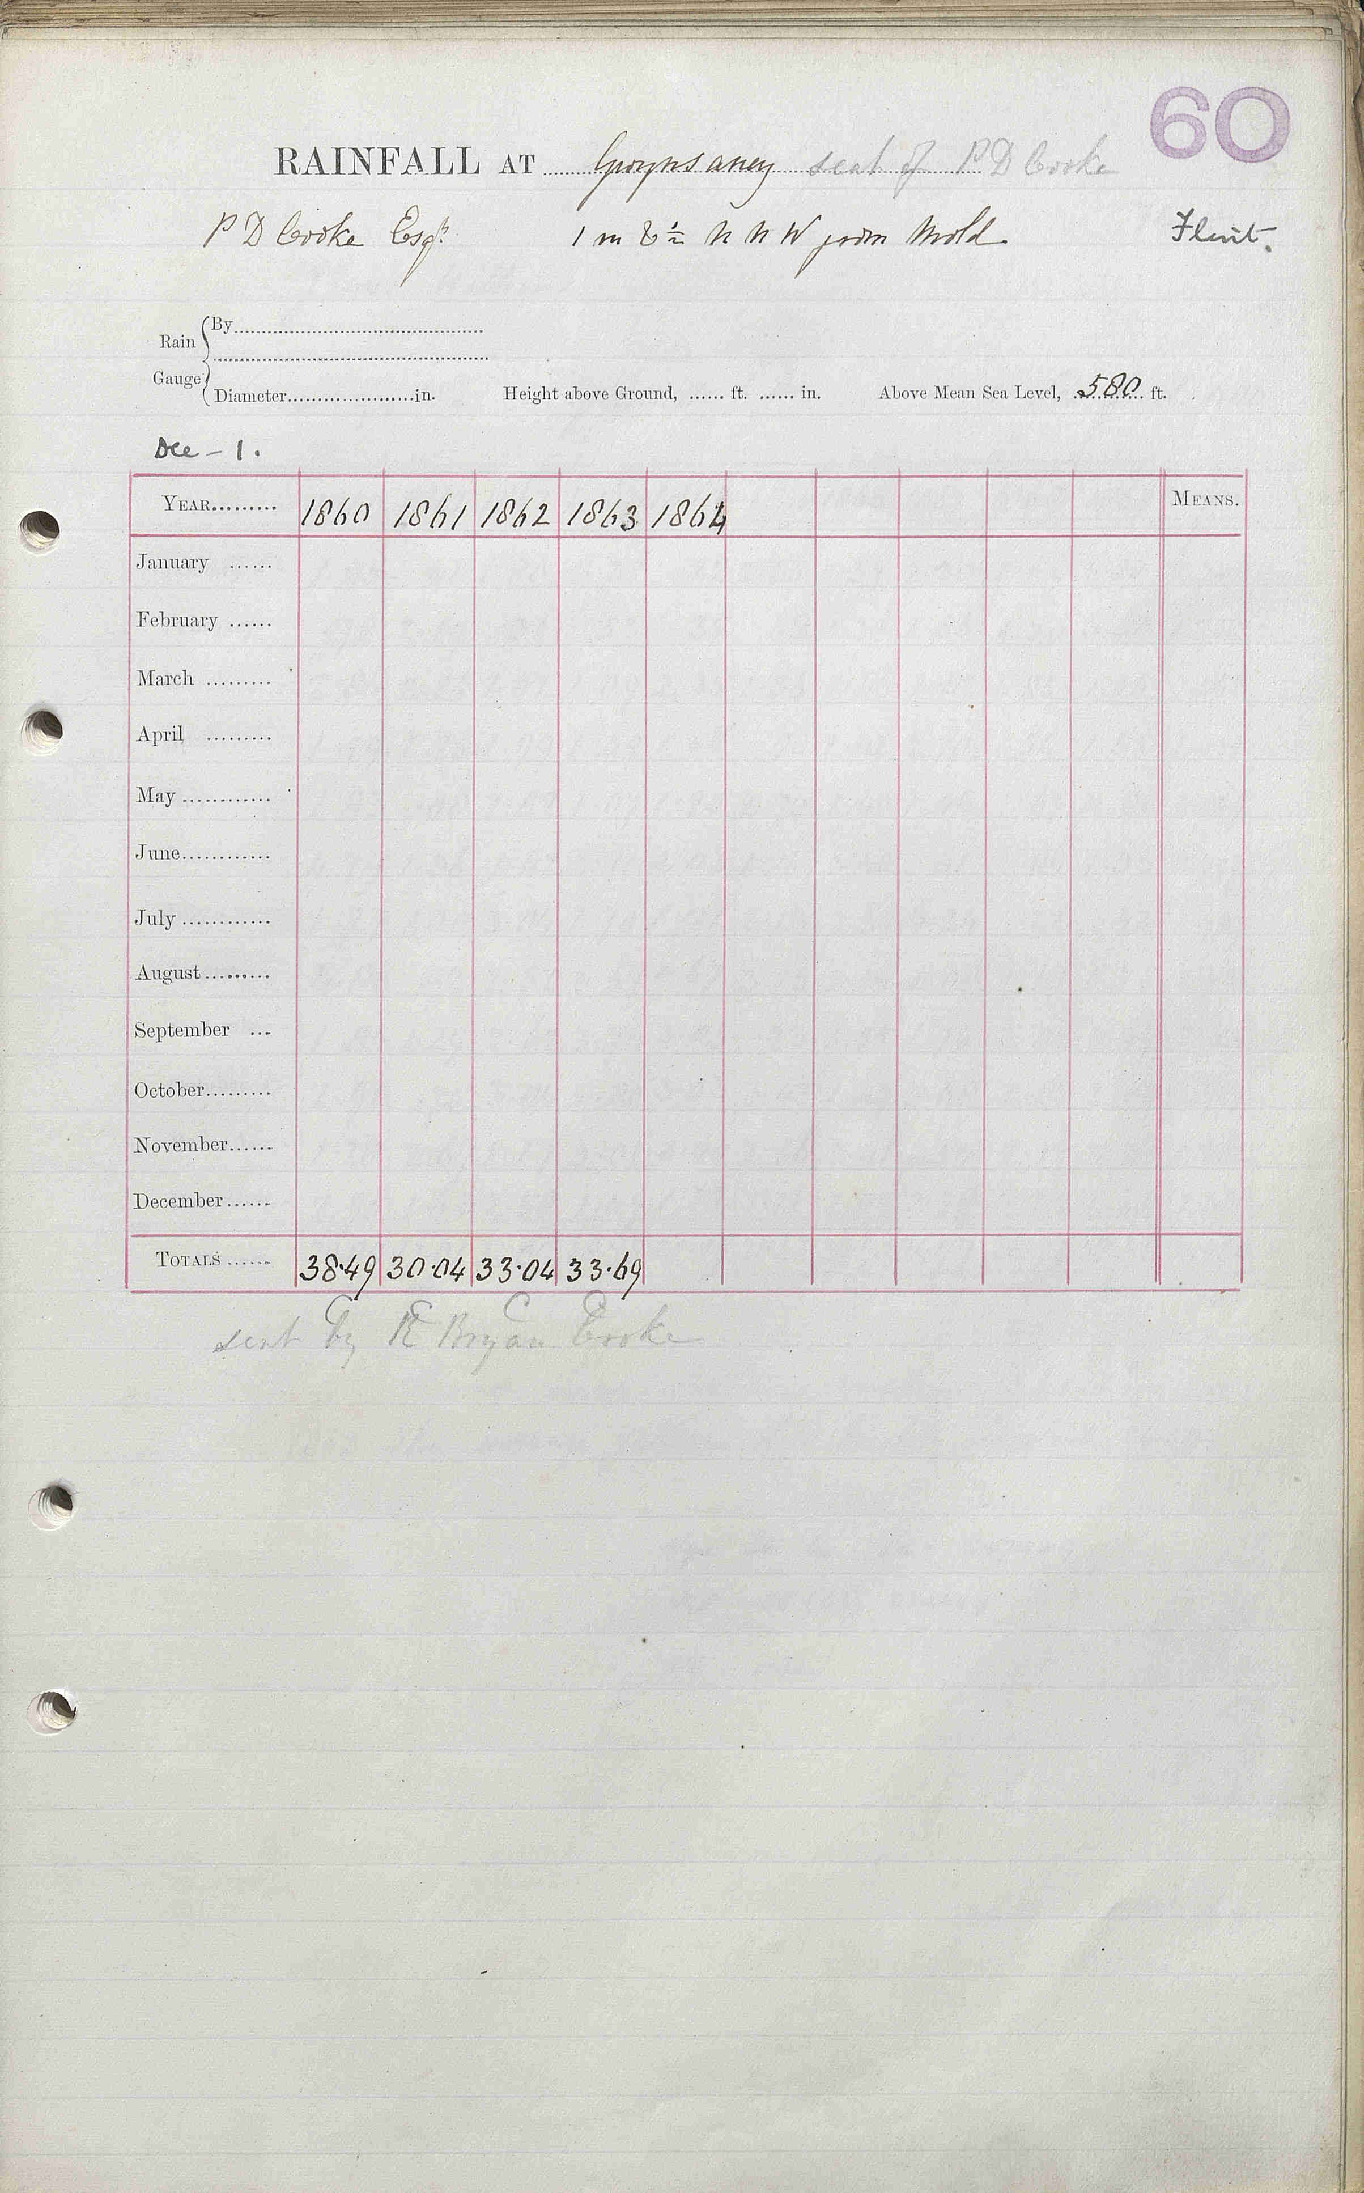 60
RAINFALL AT Gwynsaney seat of P D Cooke
P D Cooke Esqr. 1 m & ½ N N W from Mold Flint.
Rain Gauge
By
Diameter in. Height above Ground, ft. in. Above Mean Sea Level, 580 ft.
Dec - 1.
YEAR 1860 1861 1862 1863 1864 MEANS.
January
February
March
April
May
June
July
August
September
October
November
December
TOTALS 38.49 30.04 33.04 33.69
sent by R Bryan Cooke